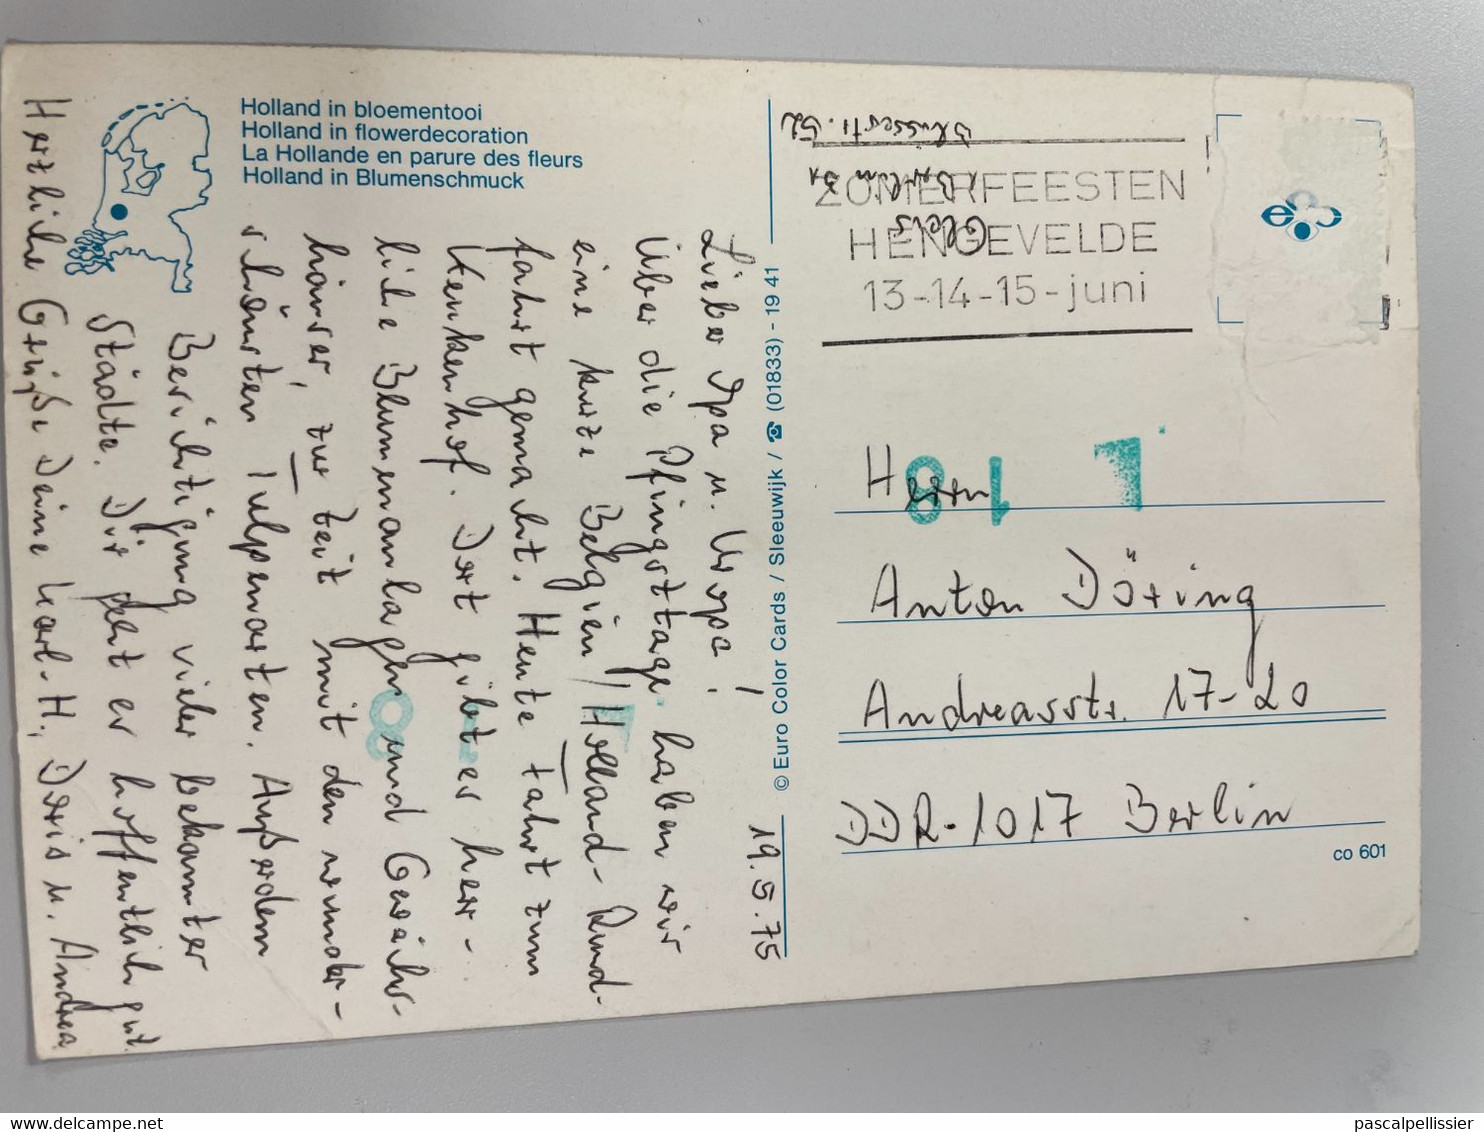 Holland in bloementooi
Holland in flowerdecoration
La Hollande en parure des fleurs
Holland in Blumenschmuck
19.5.75
Lieber Opa u. Uropa!
Über die Pfingsttage haben wir
eine kurze Belgien/Holland-Rund-
fahrt gemacht. Heute Fahrt zum
Keukenhof. Dort gibt es herr-
liche Blumenanlagen und Gewächs-
häuser, zur Zeit mit den wunder-
schönsten Tulpenarten. Außerdem
Besichtigung vieler bekannter
Städte. Dir geht es hoffentlich gut.
Herzliche Grüße Deine Karl-H., Doris u. Andrea
© Euro Color Cards / Sleeuwijk / ☎ (01833) - 19 41
1 Berlin 31
ZOMERFEESTEN
HENGEVELDE
13-14-15-juni
ecc
81
Herrn
Anton Döring
Andreasstr. 17-20
DDR-1017 Berlin
co 601
delcampe.net
pascalpellissier